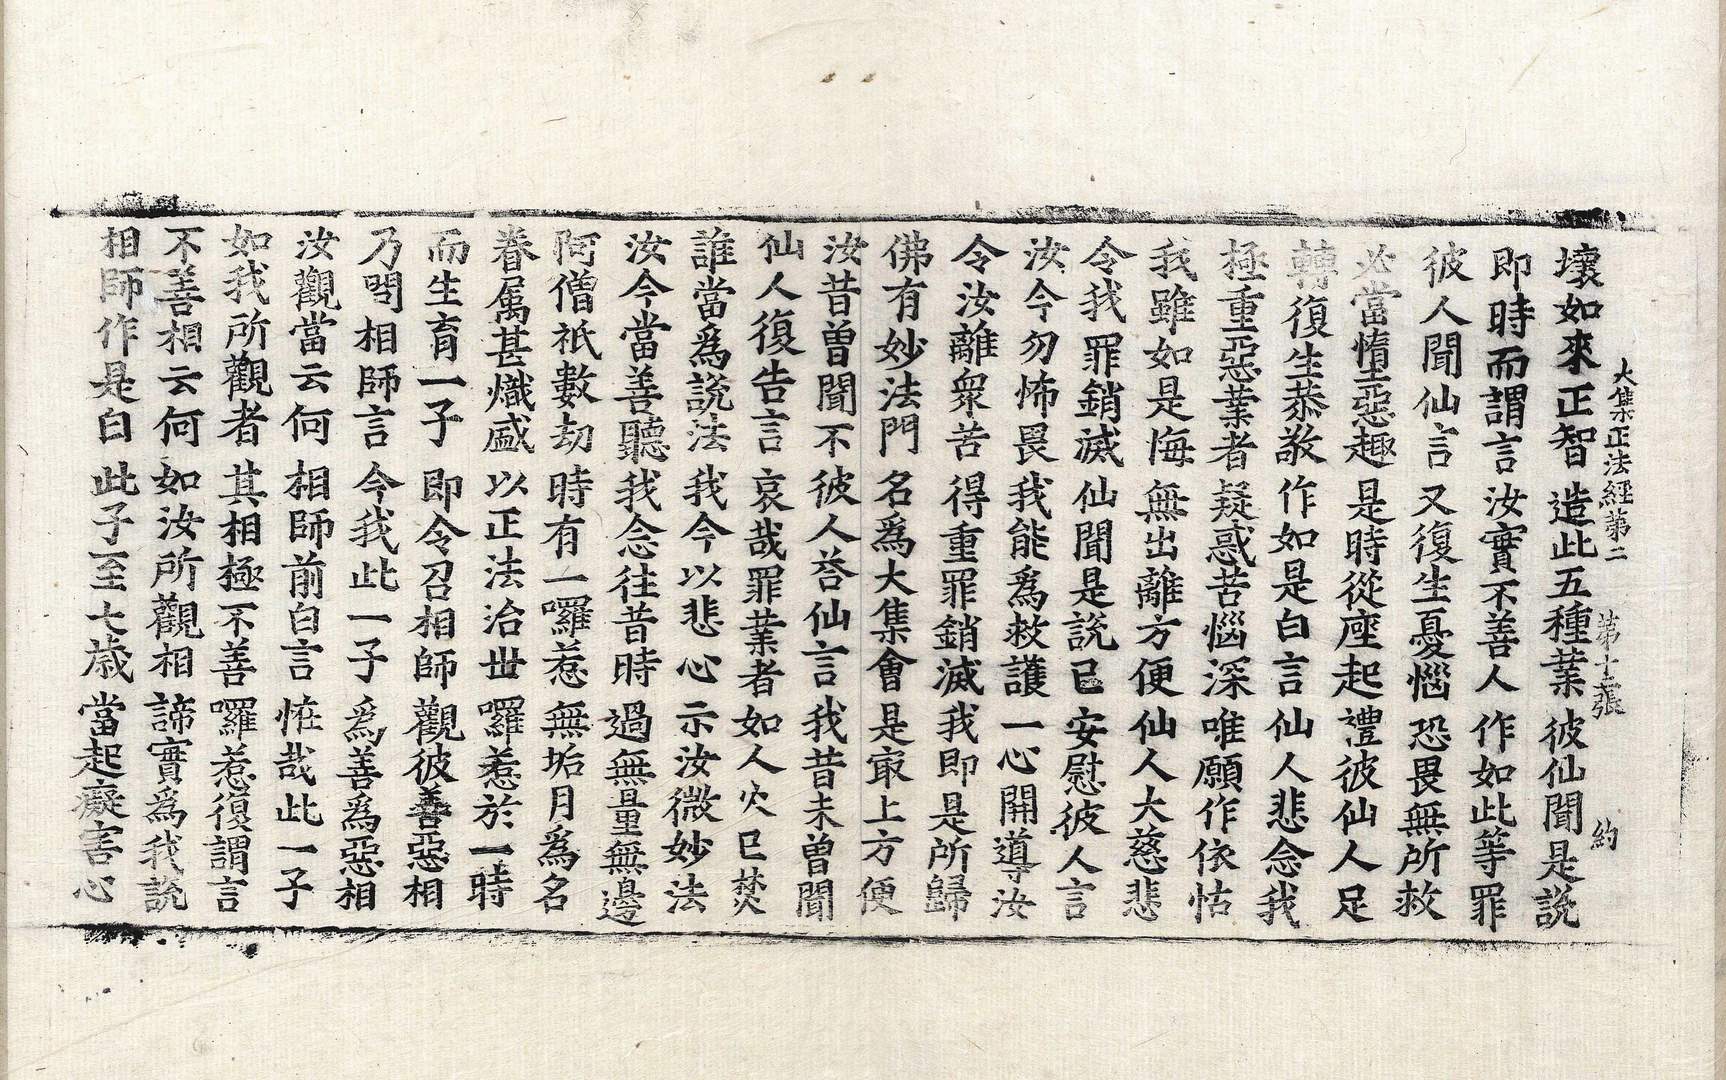 大集正法經第二　第十二張　約
壞如來正智　造此五種業　彼仙聞是說
即時而謂言　汝實不善人　作如此等罪
彼人聞仙言　又復生憂惱　恐畏無所救
必當墮惡趣　是時從座起　禮彼仙人足
轉復生恭敬　作如是白言　仙人悲念我
極重惡業者　疑惑苦惱深　唯願作依怙
我雖如是悔　無出離方便　仙人大慈悲
令我罪銷滅　仙聞是說已　安慰彼人言
汝今勿怖畏　我能爲救護　一心開導汝
令汝離衆苦　得重罪銷滅　我即是所歸
佛有妙法門　名爲大集會　是㝡上方便
汝昔曾聞不　彼人荅仙言　我昔未曾聞
仙人復告言　哀哉罪業者　如人火已焚
誰當爲說法　我今以悲心　示汝微妙法
汝今當善聽　我念往昔時　過無量無邊
阿僧祇數劫　時有一囉惹　無垢月爲名
眷属甚熾盛　以正法治世　囉惹於一時
而生育一子　即令召相師　觀彼善惡相
乃問相師言　今我此一子　爲善爲惡相
汝觀當云何　相師前白言　恠哉此一子
如我所觀者　其相極不善　囉惹復謂言
不善相云何　如汝所觀相　諦實爲我說
相師作是白　此子至七歲　當起癡害心